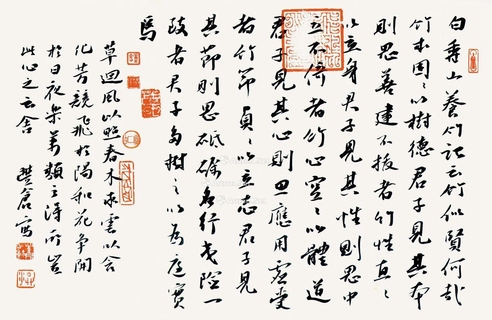 白香山養竹記云竹似賢何哉
竹本固〻以樹德君子見其本
則思善建不拔者竹性直〻
以立身君子見其性則思中
立不倚者竹心空〻以體道
君子見其心則思應用虛受
者竹節貞〻以立志君子見
其節則思砥礪名行夷險一
致者君子多樹之以為庭實
焉
草迴風以照春木承雲以含
化芳競飛於陽和花爭開
於日夜樂萬類之得所豈
此心之云舍 寫